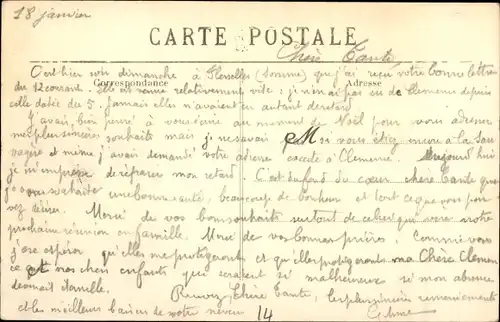 18 janvier
CARTE POSTALE
Chère Tante
Correspondance Adresse
C'est hier soir dimanche à Flesselles (Somme) que j'ai reçu votre bonne lettre
du 12 courant. elle est venue relativement vite : je n'en ai pas eu de Clemence depuis
celle datée du 5. jamais elles n'avaient eu autant de retard
J'avais bien pensé à vous écrire au moment de Noël pour vous adresser
mes plus sincères souhaits mais je ne savais si vous étiez encore à la Sau
vagère et même j'avais demandé votre adresse exacte à Clemence. Aujourd'hui
je m'empresse de réparer mon retard. C'est du fond du cœur chère Tante que
je vous souhaite une bonne santé, beaucoup de bonheur et tout ce que vous pou
vez désirer. Merci de vos bons souhaits surtout de celui qui sera notre
prochaine réunion en famille. Merci de vos bonnes prières. Comme vous
j'ose espérer qu'elles me protégeront et qu'elles protégeront ma Chère Clemen
ce et nos chers enfants qui seraient si malheureux si mon absence
devenait
Recevez Chère Tante, les plus sincères remerciements
et les meilleurs baisers de votre neveu
14